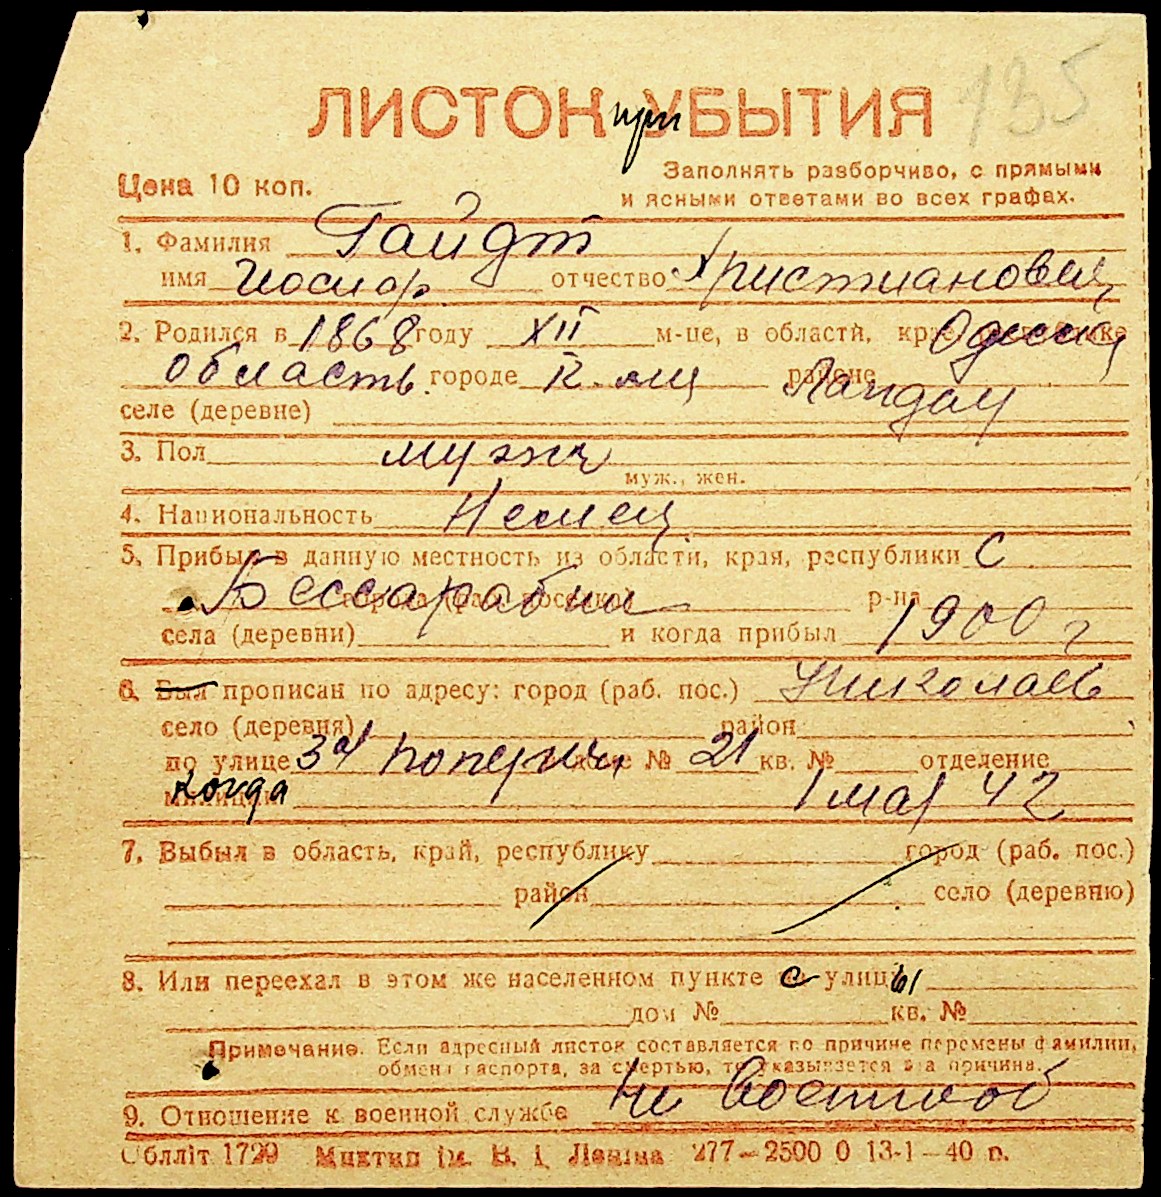 135
ЛИСТОК при УБЫТИЯ
Цена 10 коп.
Заполнять разборчиво, с прямыми
и ясными ответами во всех графах.
1. Фамилия Гайдт
имя Иосиф отчество Христианович
2. Родился в 1868 году XII м-це, в области,
область городе районе Ландау
селе (деревне)
3. Пол мужч
муж., жен.
4. Национальность Немец
5. Прибыл в данную местность из области, края, республики С
Бессарабии р-на
села (деревни) и когда прибыл 1900 г
6. Был прописан по адресу: город (раб. пос.) Николаев
село (деревня) район
по улице 3я попереч № 21 кв. № отделение
когда 1 мая 42
7. Выбыл в область, край, республику город (раб. пос.)
район село (деревню)
8. Или переехал в этом же населенном пункте с улицы
дом № кв. №
Примечание. Если адресный листок составляется по причине перемены фамилии,
обмена паспорта, за смертью, то указывается эта причина.
9. Отношение к военной службе Не военнооб
Облліт 1729 Миктип ім. В. І. Леніна 277—2500 0 13-1—40 п.